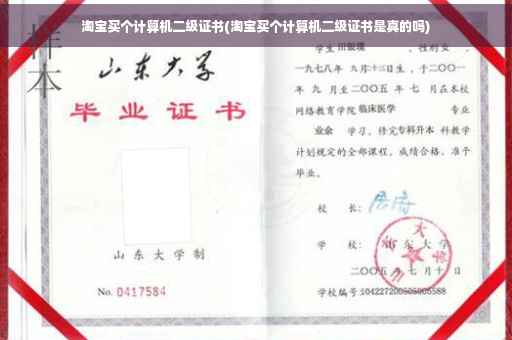 淘宝买个计算机二级证书(淘宝买个计算机二级证书是真的吗)
样本
山东大学
毕业证书
山东大学制
No. 0417584
学生 性别女,
一九七八年 九月十二日生,于二〇〇一
年 九 月至二〇〇五 年 七 月在本校
网络教育学院临床医学 专业
业余 学习,修完专科升本 科教学
计划规定的全部课程,成绩合格,准予
毕业。
校 长:
学 校: 山东大学
二〇〇五年七月十日
学校编号:104227200505005588